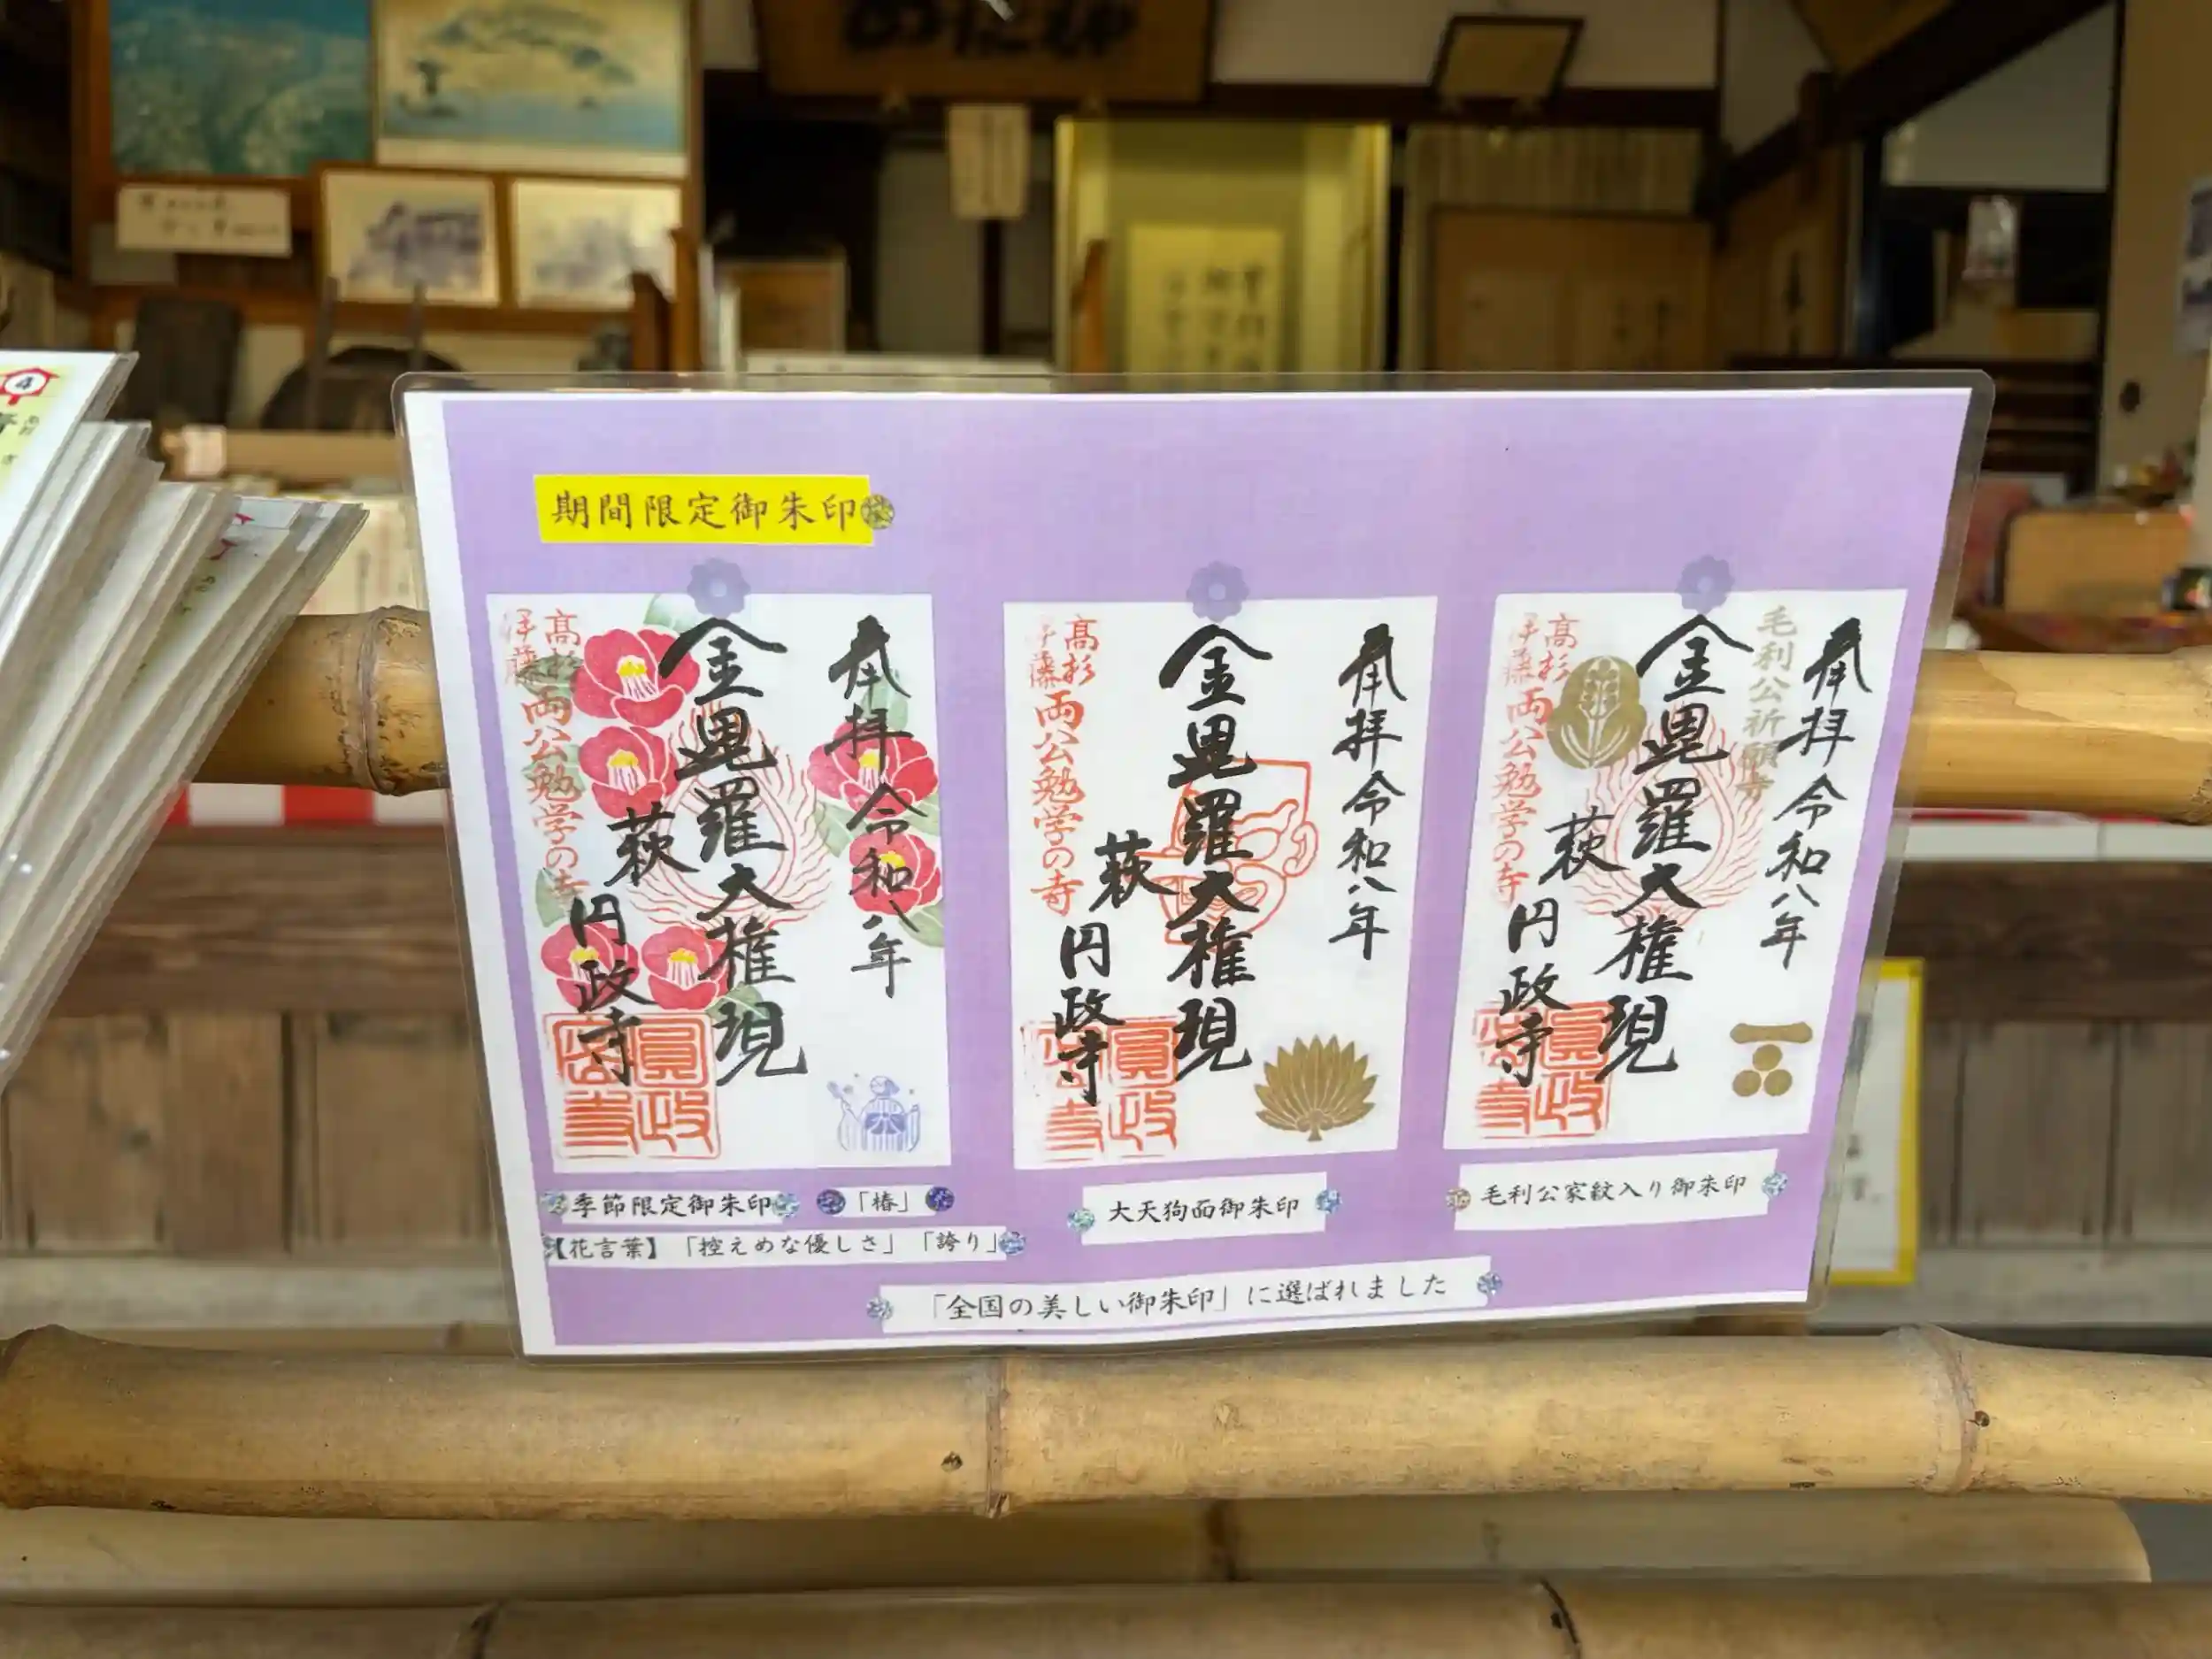 期間限定御朱印
奉拝 令和八年
金毘羅大権現
萩 円政寺
高杉
伊藤
両公勉学の寺
奉拝 令和八年
金毘羅大権現
萩 円政寺
高杉
伊藤
両公勉学の寺
奉拝 令和八年
毛利公祈願寺
金毘羅大権現
萩 円政寺
高杉
伊藤
両公勉学の寺
季節限定御朱印 「椿」
【花言葉】「控えめな優しさ」「誇り」
大天狗面御朱印
毛利公家紋入り御朱印
「全国の美しい御朱印」に選ばれました
4